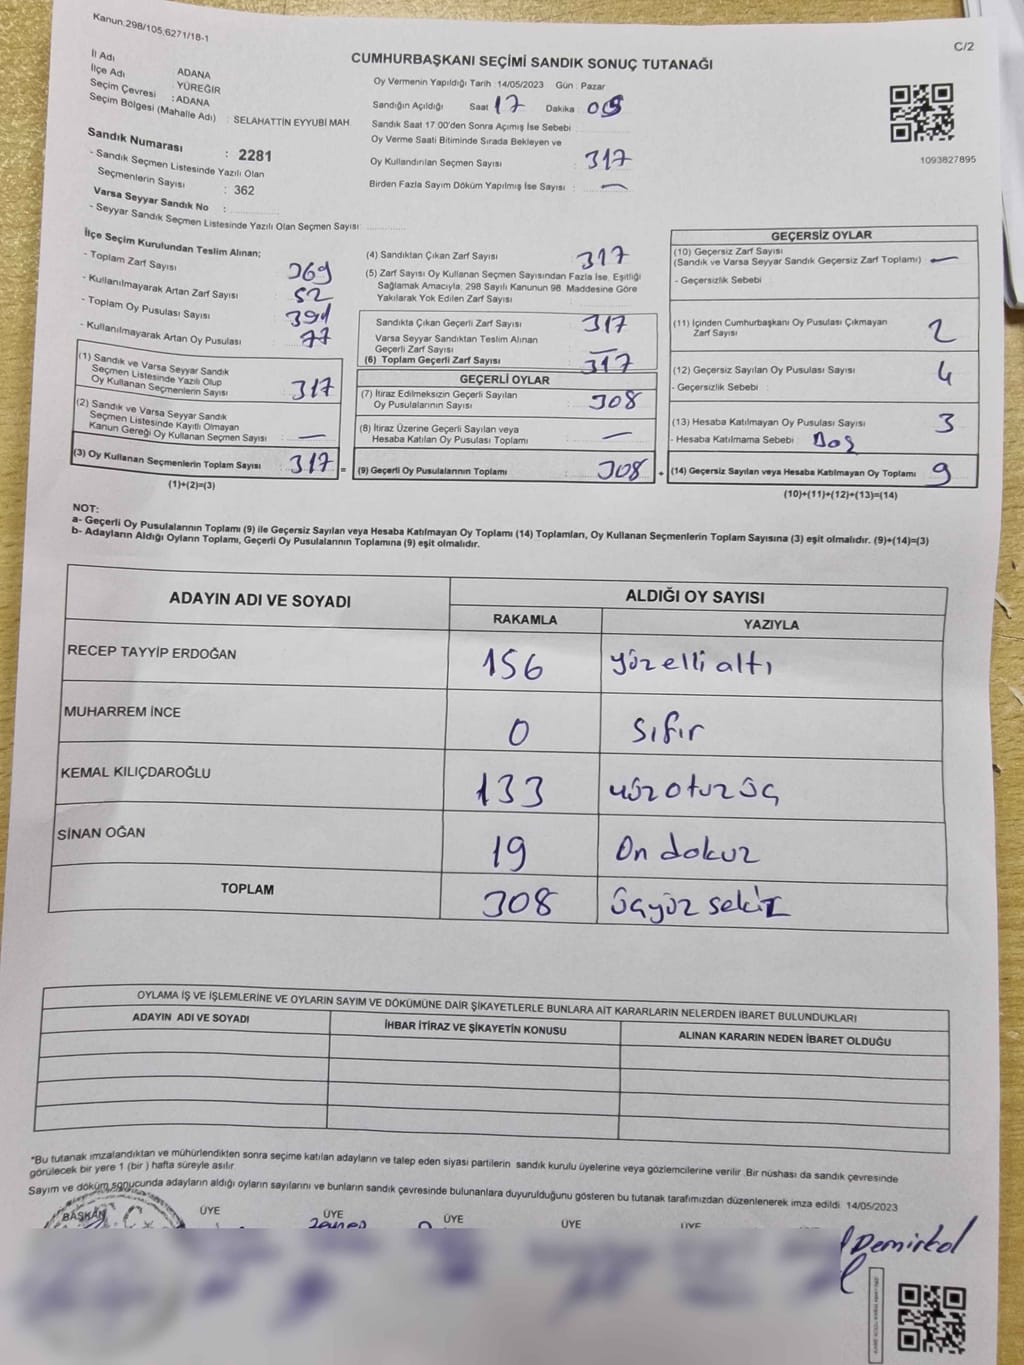 Kanun:298/105,6271/18-1
C/2
CUMHURBAŞKANI SEÇİMİ SANDIK SONUÇ TUTANAĞI
İl Adı ADANA
İlçe Adı : YÜREĞİR
Seçim Çevresi : ADANA
Seçim Bölgesi (Mahalle Adı) : SELAHATTİN EYYUBİ MAH.
Sandık Numarası : 2281
- Sandık Seçmen Listesinde Yazılı Olan
Seçmenlerin Sayısı : 362
Varsa Seyyar Sandık No :
- Seyyar Sandık Seçmen Listesinde Yazılı Olan Seçmen Sayısı:
Oy Vermenin Yapıldığı Tarih 14/05/2023 Gün : Pazar
Sandığın Açıldığı Saat 17 Dakika
Sandık Saat 17.00'den Sonra Açımış İse Sebebi
Oy Verme Saati Bitiminde Sırada Bekleyen ve
Oy Kullandırılan Seçmen Sayısı : 317
Birden Fazla Sayım Döküm Yapılmış İse Sayısı : —
1093827895
İlçe Seçim Kurulundan Teslim Alınan;
- Toplam Zarf Sayısı 369
- Kullanılmayarak Artan Zarf Sayısı 52
- Toplam Oy Pusulası Sayısı
- Kullanılmayarak Artan Oy Pusulası 77
(1) Sandık ve Varsa Seyyar Sandık
Seçmen Listesinde Yazılı Olup
Oy Kullanan Seçmenlerin Sayısı : 317
(2) Sandık ve Varsa Seyyar Sandık
Seçmen Listesinde Kayıtlı Olmayan
Kanun Gereği Oy Kullanan Seçmen Sayısı : —
(3) Oy Kullanan Seçmenlerin Toplam Sayısı : 317 =
(1)+(2)=(3)
(4) Sandıktan Çıkan Zarf Sayısı : 317
(5) Zarf Sayısı Oy Kullanan Seçmen Sayısından Fazla İse, Eşitliği
Sağlamak Amacıyla, 298 Sayılı Kanunun 98. Maddesine Göre
Yakılarak Yok Edilen Zarf Sayısı :
Sandıkta Çıkan Geçerli Zarf Sayısı : 317
Varsa Seyyar Sandıktan Teslim Alınan
Geçerli Zarf Sayısı : —
(6) Toplam Geçerli Zarf Sayısı : 317
GEÇERLİ OYLAR
(7) İtiraz Edilmeksizin Geçerli Sayılan
Oy Pusulalarının Sayısı : 308
(8) İtiraz Üzerine Geçerli Sayılan veya
Hesaba Katılan Oy Pusulası Toplamı : —
(9) Geçerli Oy Pusulalarının Toplamı : 308 +
GEÇERSİZ OYLAR
(10) Geçersiz Zarf Sayısı
(Sandık ve Varsa Seyyar Sandık Geçersiz Zarf Toplamı) : —
- Geçersizlik Sebebi :
(11) İçinden Cumhurbaşkanı Oy Pusulası Çıkmayan
Zarf Sayısı : 2
(12) Geçersiz Sayılan Oy Pusulası Sayısı : 4
- Geçersizlik Sebebi :
(13) Hesaba Katılmayan Oy Pusulası Sayısı : 3
- Hesaba Katılmama Sebebi : Boş
(14) Geçersiz Sayılan veya Hesaba Katılmayan Oy Toplamı : 9
(10)+(11)+(12)+(13)=(14)
NOT:
a- Geçerli Oy Pusulalarının Toplamı (9) ile Geçersiz Sayılan veya Hesaba Katılmayan Oy Toplamı (14) Toplamları, Oy Kullanan Seçmenlerin Toplam Sayısına (3) eşit olmalıdır. (9)+(14)=(3)
b- Adayların Aldığı Oyların Toplamı, Geçerli Oy Pusulalarının Toplamına (9) eşit olmalıdır.
ADAYIN ADI VE SOYADI
ALDIĞI OY SAYISI
RAKAMLA YAZIYLA
RECEP TAYYİP ERDOĞAN 156 yüz elli altı
MUHARREM İNCE 0 sıfır
KEMAL KILIÇDAROĞLU 133 yüz otuz üç
SİNAN OĞAN 19 On dokuz
TOPLAM 308 üçyüz sekiz
OYLAMA İŞ VE İŞLEMLERİNE VE OYLARIN SAYIM VE DÖKÜMÜNE DAİR ŞİKAYETLERLE BUNLARA AİT KARARLARIN NELERDEN İBARET BULUNDUKLARI
ADAYIN ADI VE SOYADI İHBAR İTİRAZ VE ŞİKAYETİN KONUSU ALINAN KARARIN NEDEN İBARET OLDUĞU
*Bu tutanak imzalandıktan ve mühürlendikten sonra seçime katılan adayların ve talep eden siyasi partilerin sandık kurulu üyelerine veya gözlemcilerine verilir. Bir nüshası da sandık çevresinde
görülecek bir yere 1 (bir ) hafta süreyle asılır.
Sayım ve döküm sonucunda adayların aldığı oyların sayılarını ve bunların sandık çevresinde bulunanlara duyurulduğunu gösteren bu tutanak tarafımızdan düzenlenerek imza edildi. 14/05/2023
BAŞKAN ÜYE ÜYE ÜYE ÜYE ÜYE
Demirkol